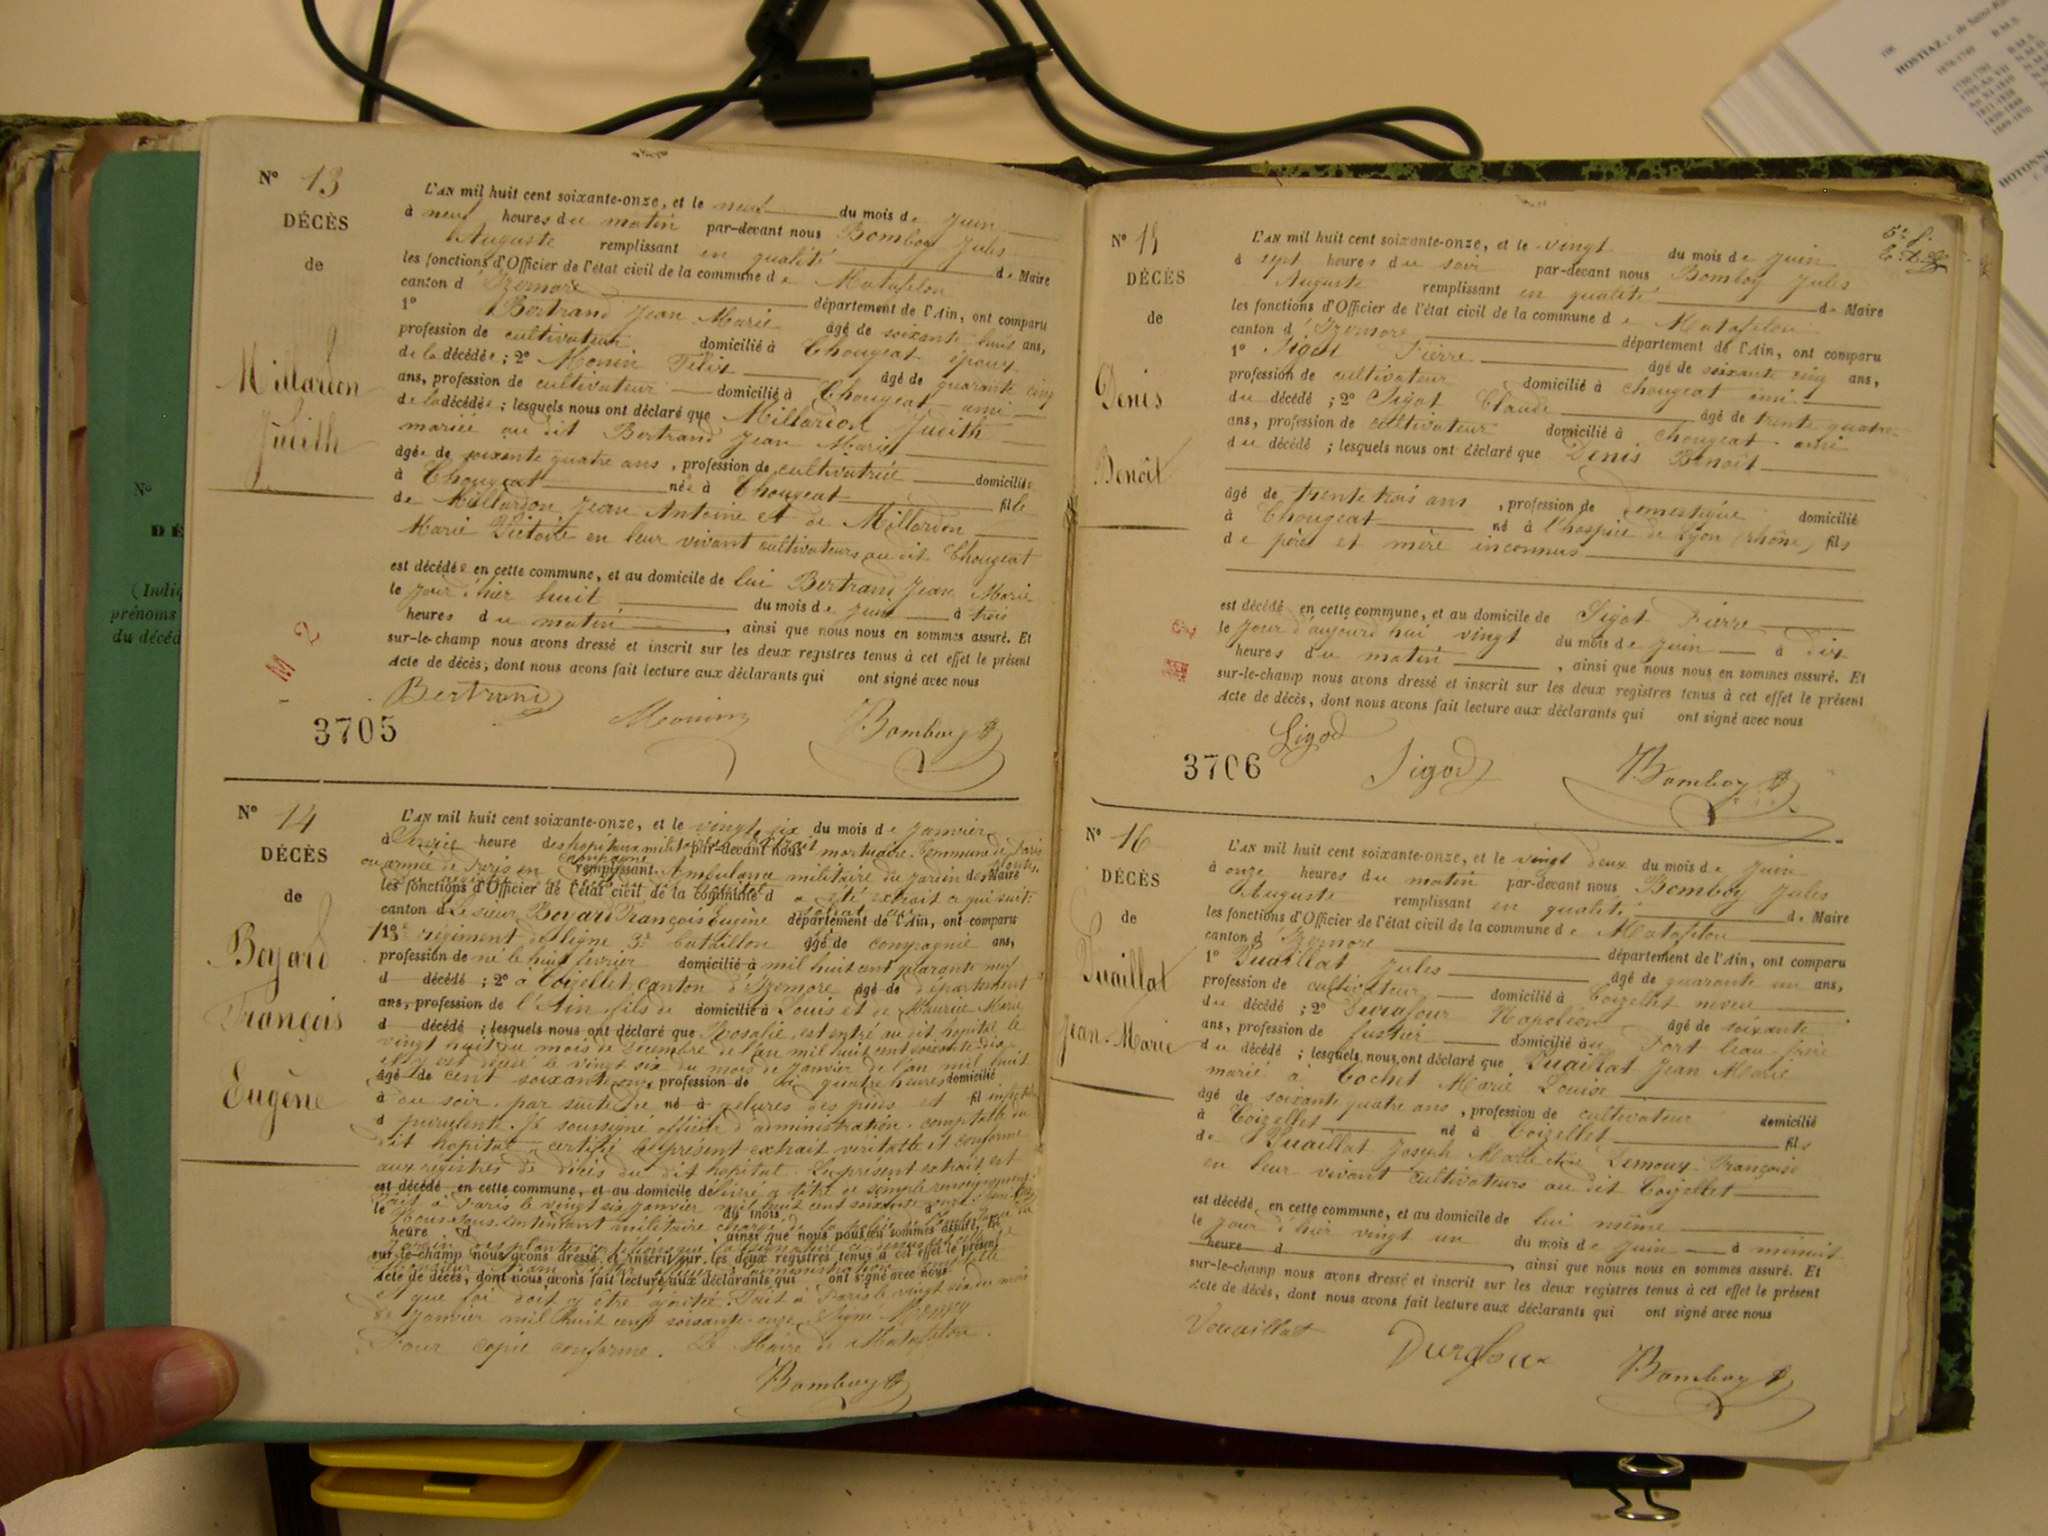 N° 13
DÉCÈS
de
Millardon
Judith
L'AN mil huit cent soixante-onze, et le neuf du mois de juin
à neuf heures du matin par-devant nous Bomboy Jules
Auguste remplissant en qualité de Maire
les fonctions d'Officier de l'état civil de la commune de Matafelon
canton d'Izernore département de l'Ain, ont comparu
1° Bertrand Jean Marie âgé de soixante huit ans,
profession de cultivateur domicilié à Chougeat époux
de la décédée ; 2° Monin Félix âgé de quarante cinq
ans, profession de cultivateur domicilié à Chougeat ami
de la décédée ; lesquels nous ont déclaré que Millardon Judith
mariée au dit Bertrand Jean Marie
âgée de soixante quatre ans, profession de cultivatrice domiciliée
à Chougeat née à Chougeat fille
de Millardon Jean Antoine et de Millardon
Marie Victoire en leur vivant cultivateurs au dit Chougeat
est décédée en cette commune, et au domicile de lui Bertrand Jean Marie
le jour d'hier huit du mois de juin à trois
heures du matin, ainsi que nous nous en sommes assuré. Et
sur-le-champ nous avons dressé et inscrit sur les deux registres tenus à cet effet le présent
Acte de décès, dont nous avons fait lecture aux déclarants qui ont signé avec nous
Bertrand Monin Bomboy
3705
N° 14
DÉCÈS
de
Boyard
François
Eugène
L'AN mil huit cent soixante-onze, et le vingt six du mois de janvier
à heure des hopitaux militaires par-devant nous mortuaire. Commune de Paris
ou armée de Paris en campagne remplissant Ambulance militaire du jardin des plantes, de Maire
les fonctions d'Officier de l'état civil de la commune d a été extrait ce qui suit
canton d Le sieur Boyard François Eugène soldat au département de l'Ain, ont comparu
1° régiment de ligne 3e bataillon âgé de compagnie ans,
profession de né le huit février domicilié à mil huit cent quarante neuf
d décédé ; 2° à Coizellet canton d'Izernore âgé de département
ans, profession de l'Ain fils de domicilié à Louis et de Maurice Marie
d décédé ; lesquels nous ont déclaré que Rosalie, est entré au dit hopital le
vingt huit du mois de décembre de l'an mil huit cent soixante dix
et y est décédé le vingt six du mois de janvier de l'an mil huit
âgé de cent soixante onze, profession de à quatre heures domicilié
à du soir, par suite de né à gelures des pieds et fil infection
d purulente. Je soussigné officier d'administration, comptable du
dit hopital certifie le présent extrait véritable et conforme
aux registres de décès du dit hopital. Le présent extrait est
est décédé en cette commune, et au domicile de délivré à titre de simple renseignement.
le Fait à Paris le vingt six janvier mil huit cent soixante onze. du mois
Nous sous intendant militaire chargé de la police de l'ambulance du
heure d, ainsi que nous nous en sommes assuré. Et
jardin des plantes certifions que la signature ci-dessus est celle de
sur-le-champ nous avons dressé et inscrit sur les deux registres tenus à cet effet le présent
Monsieur officier d'administration comptable
Acte de décès, dont nous avons fait lecture aux déclarants qui ont signé avec nous
et que foi doit y être ajoutée. Fait à Paris le vingt six du mois
de janvier mil huit cent soixante-onze. Signé
Pour copie conforme. Le Maire de Matafelon.
Bomboy
N° 15
DÉCÈS
de
Denis
Benoît
L'AN mil huit cent soixante-onze, et le vingt du mois de juin
à sept heures du soir par-devant nous Bomboy Jules
Auguste remplissant en qualité de Maire
les fonctions d'Officier de l'état civil de la commune de Matafelon
canton d'Izernore département de l'Ain, ont comparu
1° Sigot Pierre âgé de soixante cinq ans,
profession de cultivateur domicilié à Chougeat ami
du décédé ; 2° Sigot Claude âgé de trente quatre
ans, profession de cultivateur domicilié à Chougeat ami
du décédé ; lesquels nous ont déclaré que Denis Benoît
âgé de trente trois ans, profession de domestique domicilié
à Chougeat né à l'hospice de Lyon (rhône) fils
de père et mère inconnus
est décédé en cette commune, et au domicile de Sigot Pierre
le jour d'aujourd'hui vingt du mois de juin à dix
heures du matin, ainsi que nous nous en sommes assuré. Et
sur-le-champ nous avons dressé et inscrit sur les deux registres tenus à cet effet le présent
Acte de décès, dont nous avons fait lecture aux déclarants qui ont signé avec nous
Sigod Sigod Bomboy
3706
N° 16
DÉCÈS
de
Puaillat
Jean-Marie
L'AN mil huit cent soixante-onze, et le vingt deux du mois de juin
à onze heures du matin par-devant nous Bomboy Jules
Auguste remplissant en qualité de Maire
les fonctions d'Officier de l'état civil de la commune de Matafelon
canton d'Izernore département de l'Ain, ont comparu
1° Puaillat Jules âgé de quarante un ans,
profession de cultivateur domicilié à Coizellet neveu
du décédé ; 2° Durafour Napoléon âgé de soixante
ans, profession de fustier domicilié au Port beau frère
du décédé ; lesquels nous ont déclaré que Puaillat Jean Marie
marié à Cochet Marie Louise
âgé de soixante quatre ans, profession de cultivateur domicilié
à Coizellet né à Coizellet fils
de Puaillat Joseph Marie et de Lemoux Françoise
en leur vivant cultivateurs au dit Coizellet
est décédé en cette commune, et au domicile de lui même
le jour d'hier vingt un du mois de juin à minuit
heure d, ainsi que nous nous en sommes assuré. Et
sur-le-champ nous avons dressé et inscrit sur les deux registres tenus à cet effet le présent
Acte de décès, dont nous avons fait lecture aux déclarants qui ont signé avec nous
Durafour Bomboy
N°
DÉ
(Indiq
prénoms
du décéd
HOSTIAZ, c. de Saint-Ra
HOTONNE